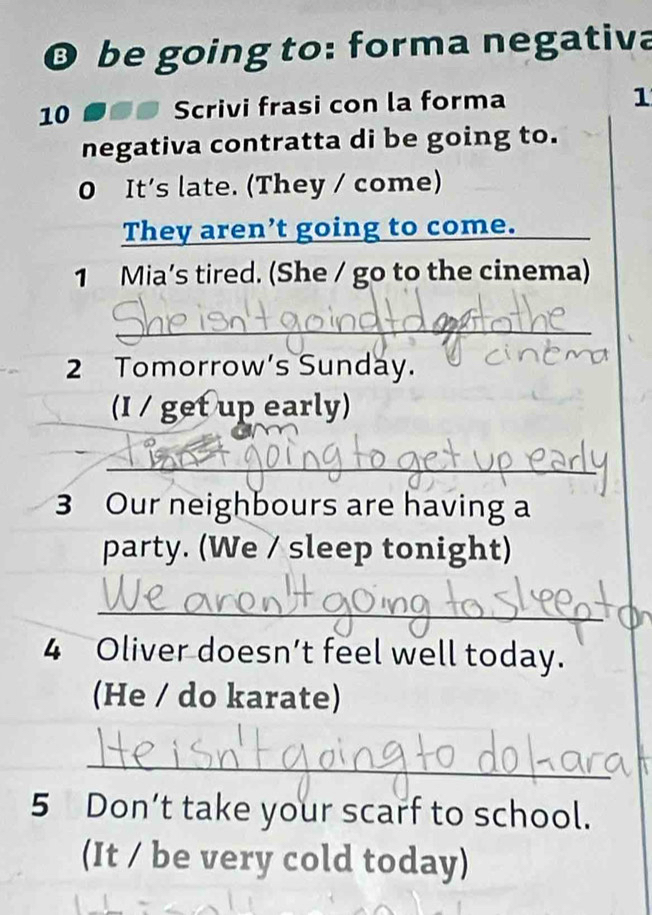 B be going to: forma negativa
10 Scrivi frasi con la forma
1
negativa contratta di be going to.
0 It's late. (They / come)
They aren't going to come.
1 Mia's tired. (She / go to the cinema)
She isn't going to go to the
cinema
2 Tomorrow's Sunday.
(I / get up early)
am
I going to get up early
3 Our neighbours are having a
party. (We / sleep tonight)
We aren't going to sleep
4 Oliver doesn't feel well today.
(He / do karate)
He isn't going to do karat
5 Don't take your scarf to school.
(It / be very cold today)